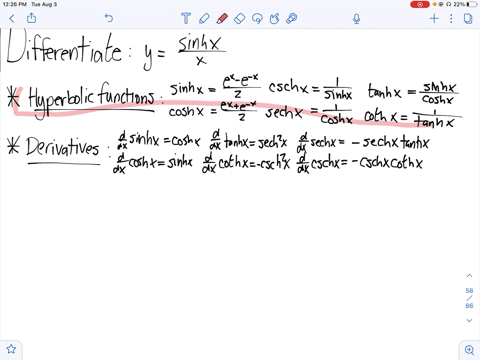 12:26 PM Tue Aug 3
22%
Differentiate: y = sinhx/x
* Hyperbolic functions: sinhx = (eˣ-e⁻ˣ)/2 cschx = 1/sinhx tanhx = sinhx/coshx
coshx = (eˣ+e⁻ˣ)/2 sechx = 1/coshx cothx = 1/tanhx
* Derivatives: d/dx sinhx = coshx d/dx tanhx = sech²x d/dx sechx = - sechx tanhx
d/dx coshx = sinhx d/dx cothx = -csch²x d/dx cschx = - cschx cothx
58
/
86